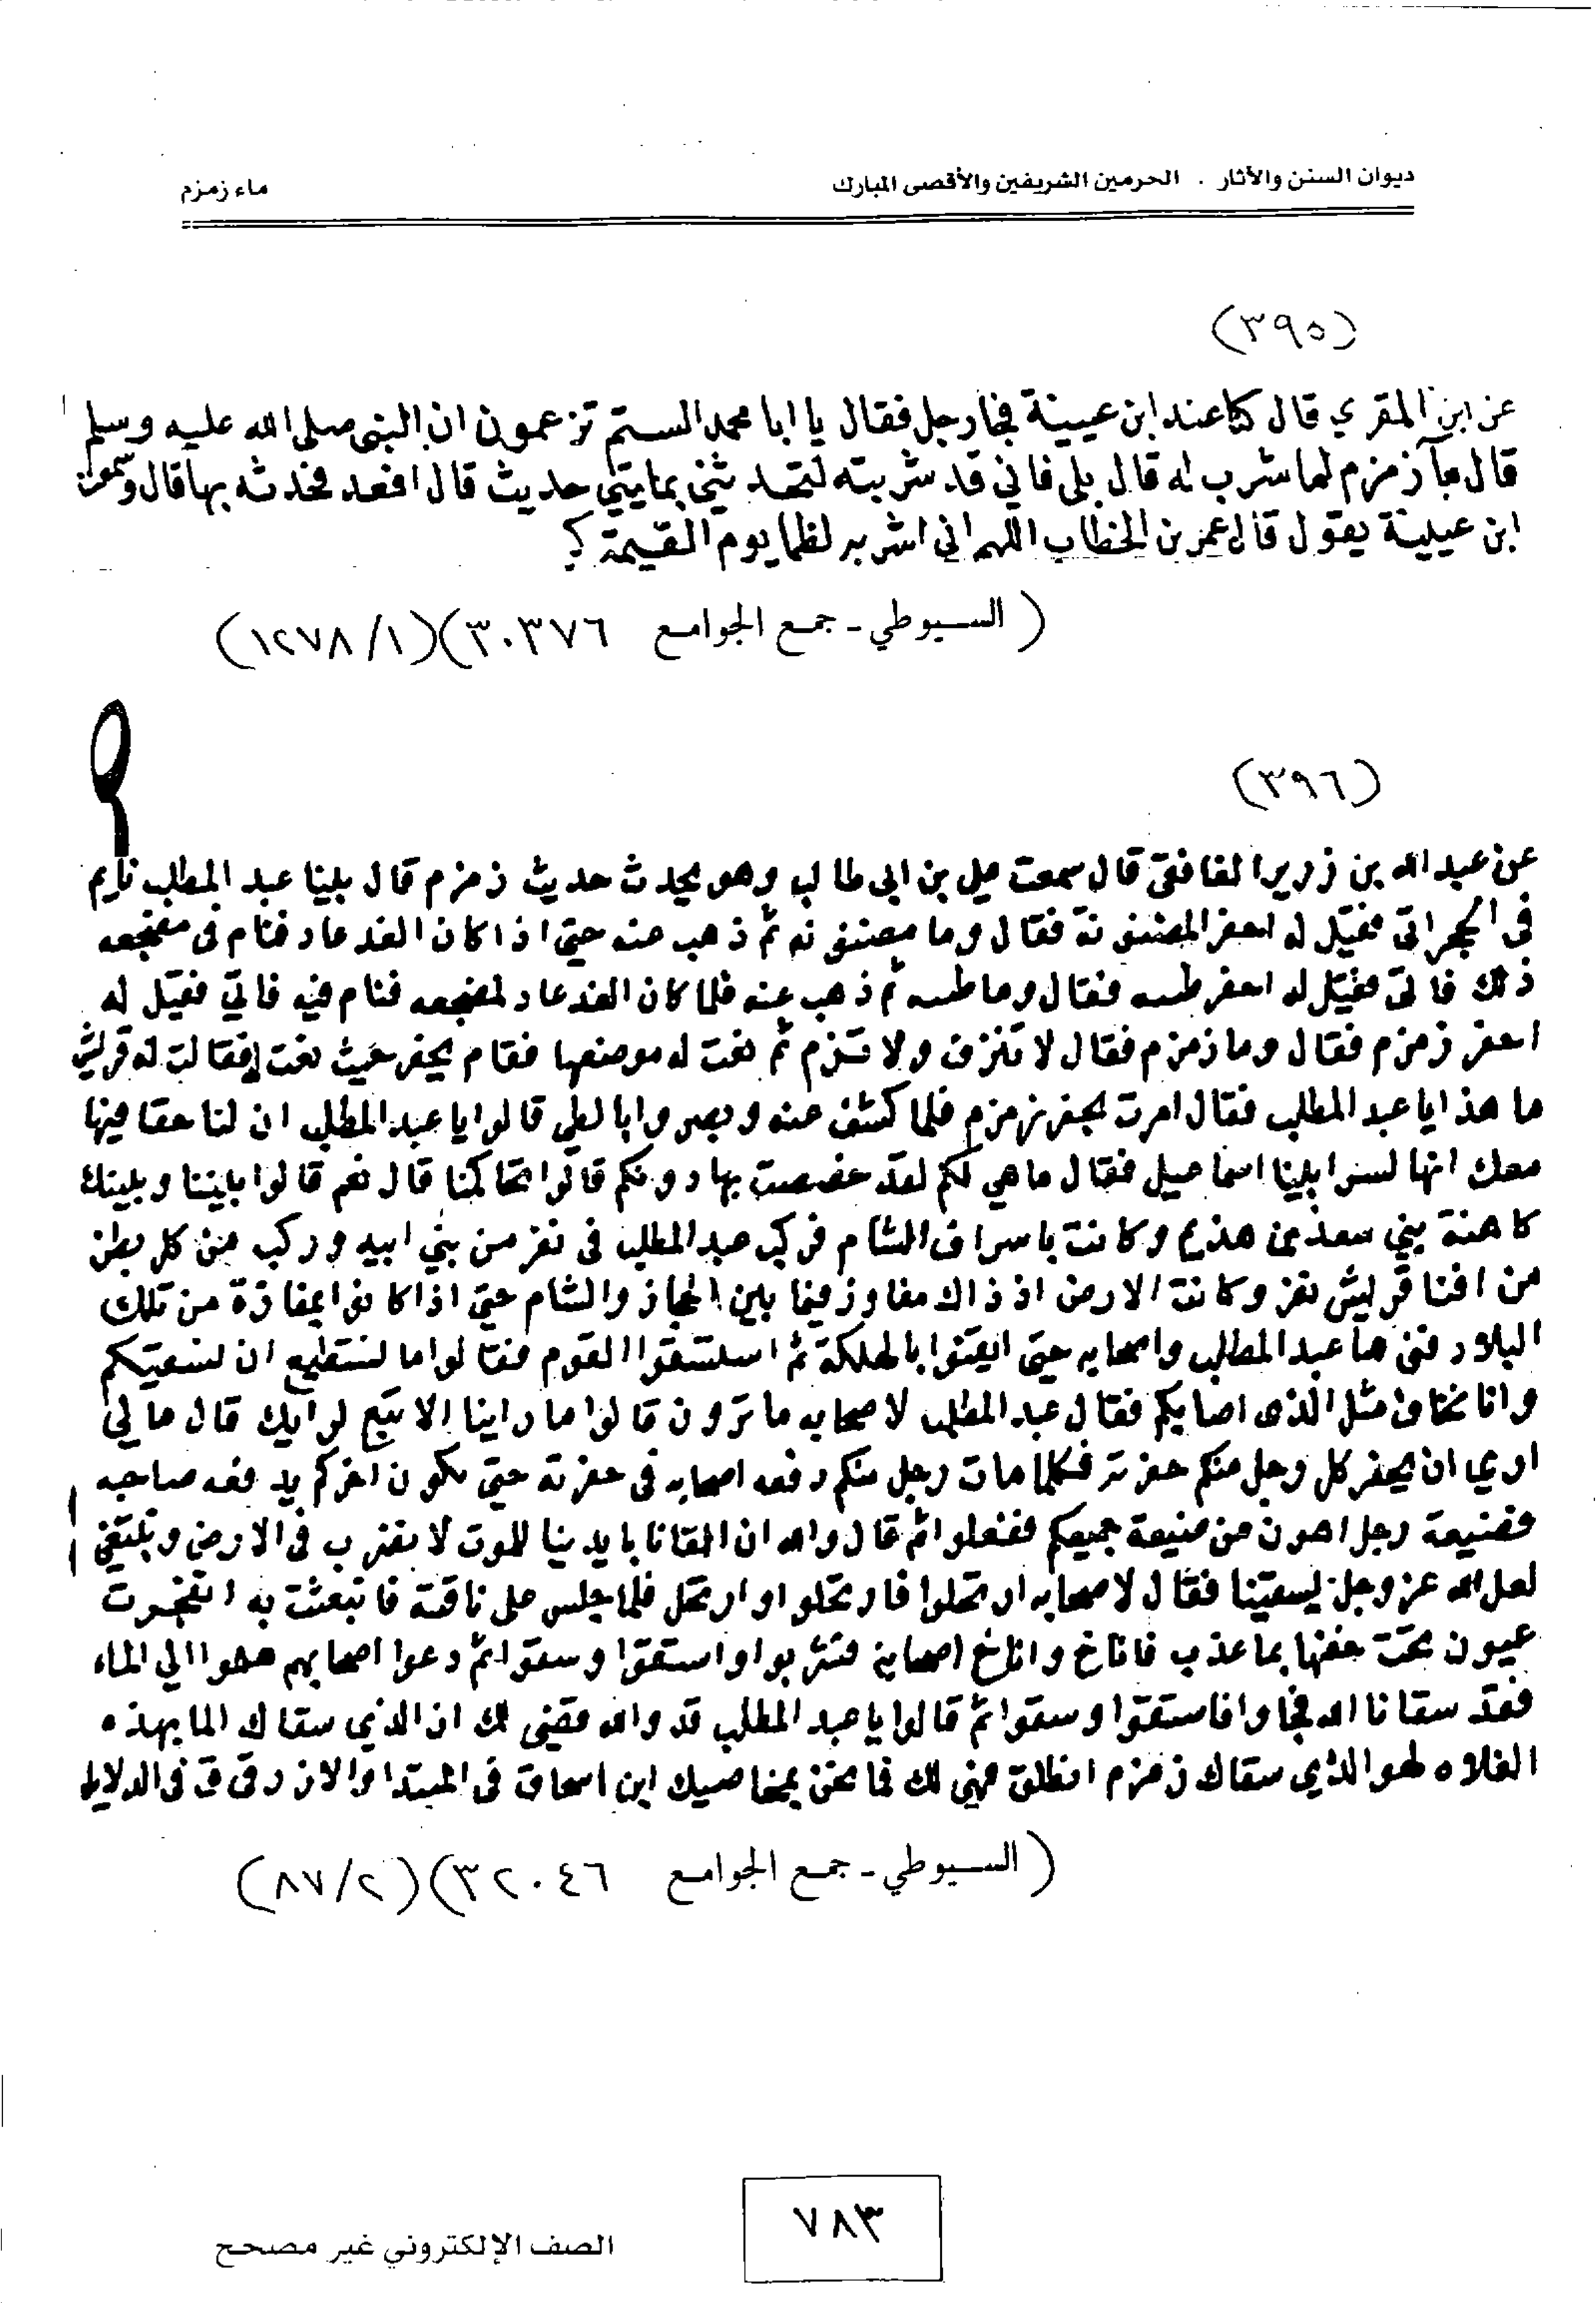 ديوان السنن والآثار . الحرمين الشريفين والأقصى المبارك
ماء زمزم
(٣٩٥)
عن ابن المقري قال كنا عند ابن عيينة فجا رجل فقال يا ابا محمد الستم تزعمون ان النبي صلى الله عليه وسلم
قال مآ زمزم لما شرب له قال بلى فاني قد شربته لتحدثني بمايتي حديث قال اقعد فحدثه بها قال وسمعت
ابن عيينة يقول قال عمر بن الخطاب اللهم اني اشربه لظما يوم القيمة ؟
(السيوطي - جمع الجوامع ٣٠٣٧٦) (١/ ١٢٧٨)
(٣٩٦)
عن عبد الله بن زرير الغافقي قال سمعت علي بن ابي طالب وهو يحدث حديث زمزم قال بينا عبد المطلب نايم
في الحجر اتي فقيل له احفر المضنونة فقال وما مضنونه ثم ذهب عنه حتى اذا كان الغد عاد فنام في مضجعه
ذلك فاتي فقيل له احفر طيبه فقال وما طيبه ثم ذهب عنه فلما كان الغد عاد لمضجعه فنام فيه فاتي فقيل له
احفر زمزم فقال وما زمزم فقال لا تنزف ولا تزم ثم نعت له موضعها فقام يحفر حيث نعت فقالت له قريش
ما هذا يا عبد المطلب فقال امرت بحفر زمزم فلما كشف عنه وبصروا بالطي قالوا يا عبد المطلب ان لنا حقا فيها
معك انها لبير ابينا اسماعيل فقال ما هي لكم لقد خصصت بها دونكم قالوا تحاكمنا قال نعم قالوا بيننا وبينك
كاهنة بني سعد بن هذيم وكانت باسراف الشام فركب عبد المطلب في نفر من بني ابيه وركب من كل بطن
من افنا قريش نفر وكانت الارض اذ ذاك مفاوز فيما بين الحجاز والشام حتى اذا كانوا بمفازة من تلك
البلاد فني ما عبد المطلب واصحابه حتى ايقنوا بالهلكة ثم استسقوا القوم فقالوا ما نستطيع ان نسقيكم
وانا نخاف مثل الذي اصابكم فقال عبد المطلب لاصحابه ما ترون قالوا ما راينا الا تبع لرايك قال ما لي
اري ان يحفر كل رجل منكم حفرته فكلما مات رجل منكم دفعه اصحابه في حفرته حتى يكون اخركم يدفعه صاحبه
فضيعة رجل اهون من ضيعة جميعكم ففعلوا ثم قال والله ان القانا بايدينا للموت لا نضرب في الارض ونبتغي
لعل الله عز وجل يسقينا فقال لاصحابه ارتحلوا فارتحلوا وارتحل فلما جلس على ناقته فانبعثت به انفجرت
عيون تحت خفها بما عذب فاناخ واناخ اصحابه فشربوا واستقوا وسقوا ثم دعوا اصحابهم هلموا الي الماء
فقد سقانا الله فجاوا فاستقوا وسقوا ثم قالوا يا عبد المطلب قد والله قضي لك ان الذي سقاك الما بهذه
الفلاه لهو الذي سقاك زمزم انطلق فهي لك فما نحن بمخاصميك ابن اسحاق في المبتدا والازرقي ق في الدلايل
(السيوطي - جمع الجوامع ٣٢٠٤٦) (٢/ ٨٧)
٧٨٣
الصف الإلكتروني غير مصحح